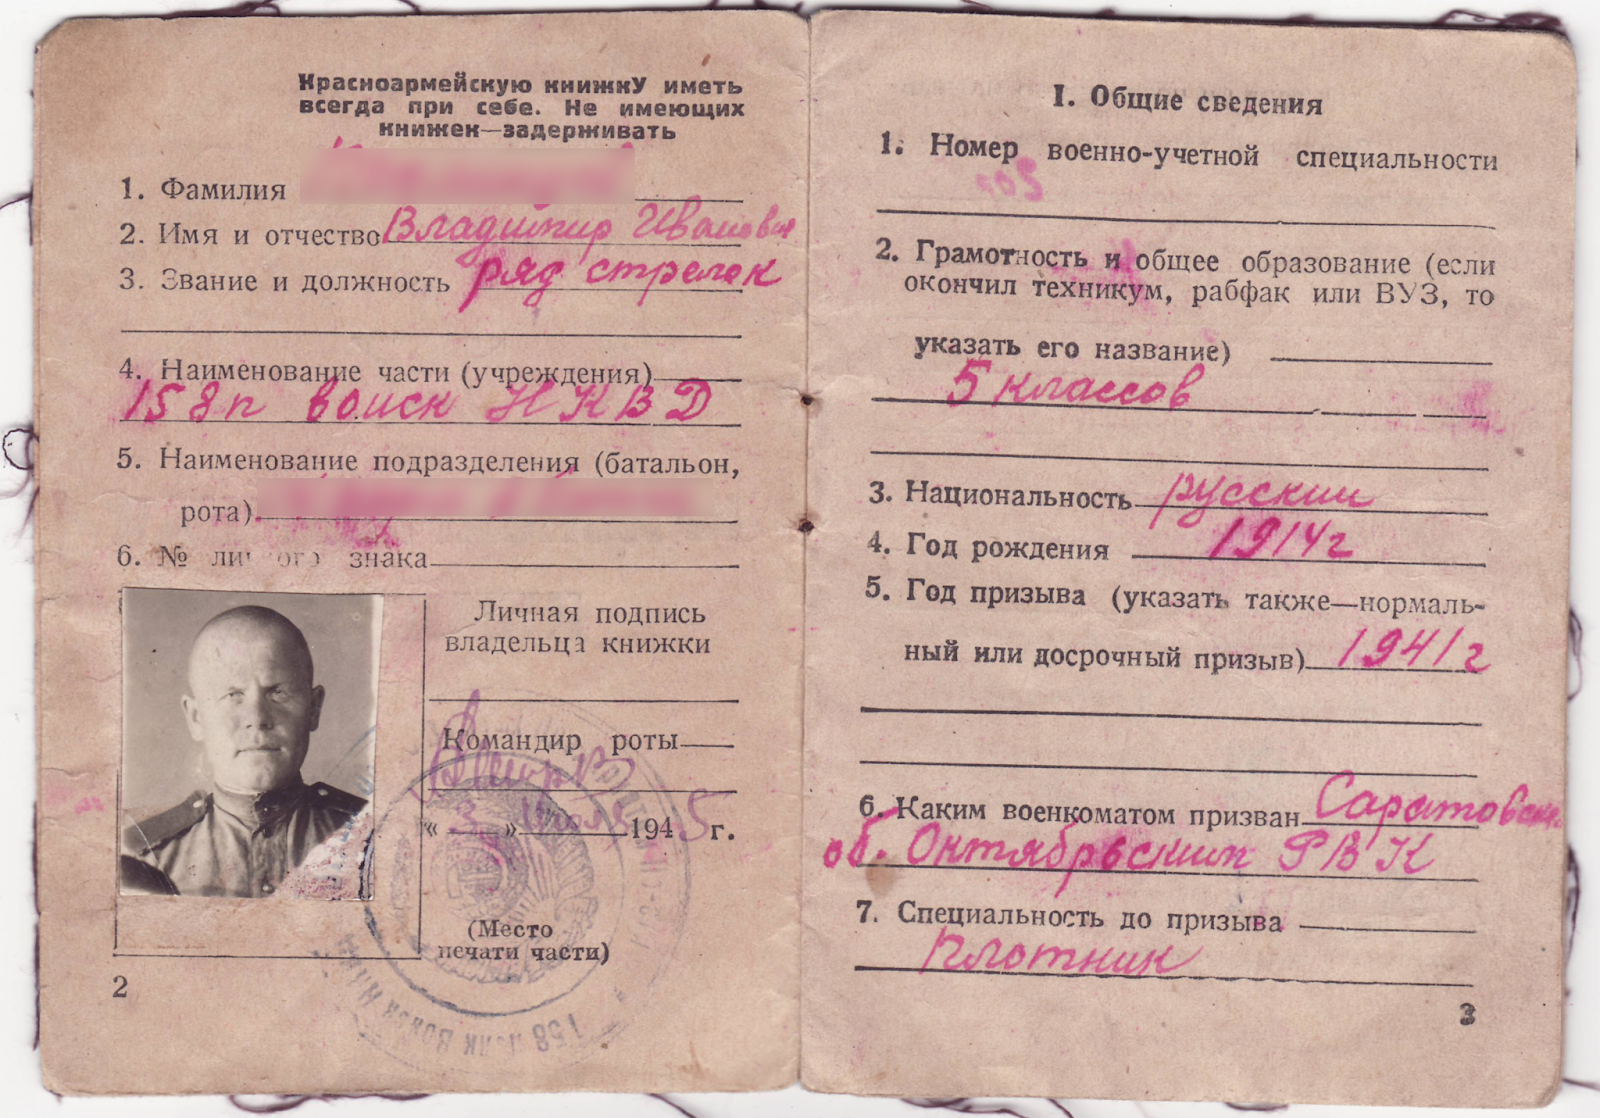 Красноармейскую книжку иметь
всегда при себе. Не имеющих
книжек—задерживать
1. Фамилия
2. Имя и отчество Владимир Иванович
3. Звание и должность ряд стрелок
4. Наименование части (учреждения)
158 п войск НКВД
5. Наименование подразделения (батальон,
рота)
6. № личного знака
Личная подпись
владельца книжки
Командир роты
« 3 » Июля 1945 г.
(Место
печати части)
158 полк Войск НКВД
2
I. Общие сведения
1. Номер военно-учетной специальности
2. Грамотность и общее образование (если
окончил техникум, рабфак или ВУЗ, то
указать его название)
5 классов
3. Национальность русский
4. Год рождения 1914 г
5. Год призыва (указать также—нормаль-
ный или досрочный призыв) 1941 г
6. Каким военкоматом призван Саратовская
об. Октябрьским РВК
7. Специальность до призыва
Плотник
3